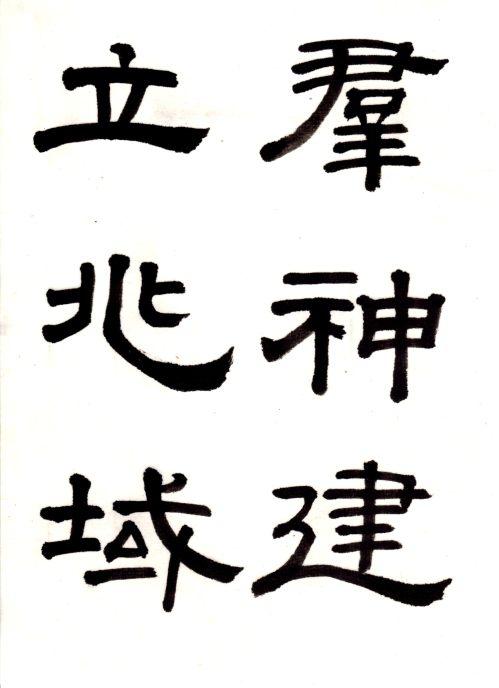 羣神建
立兆域